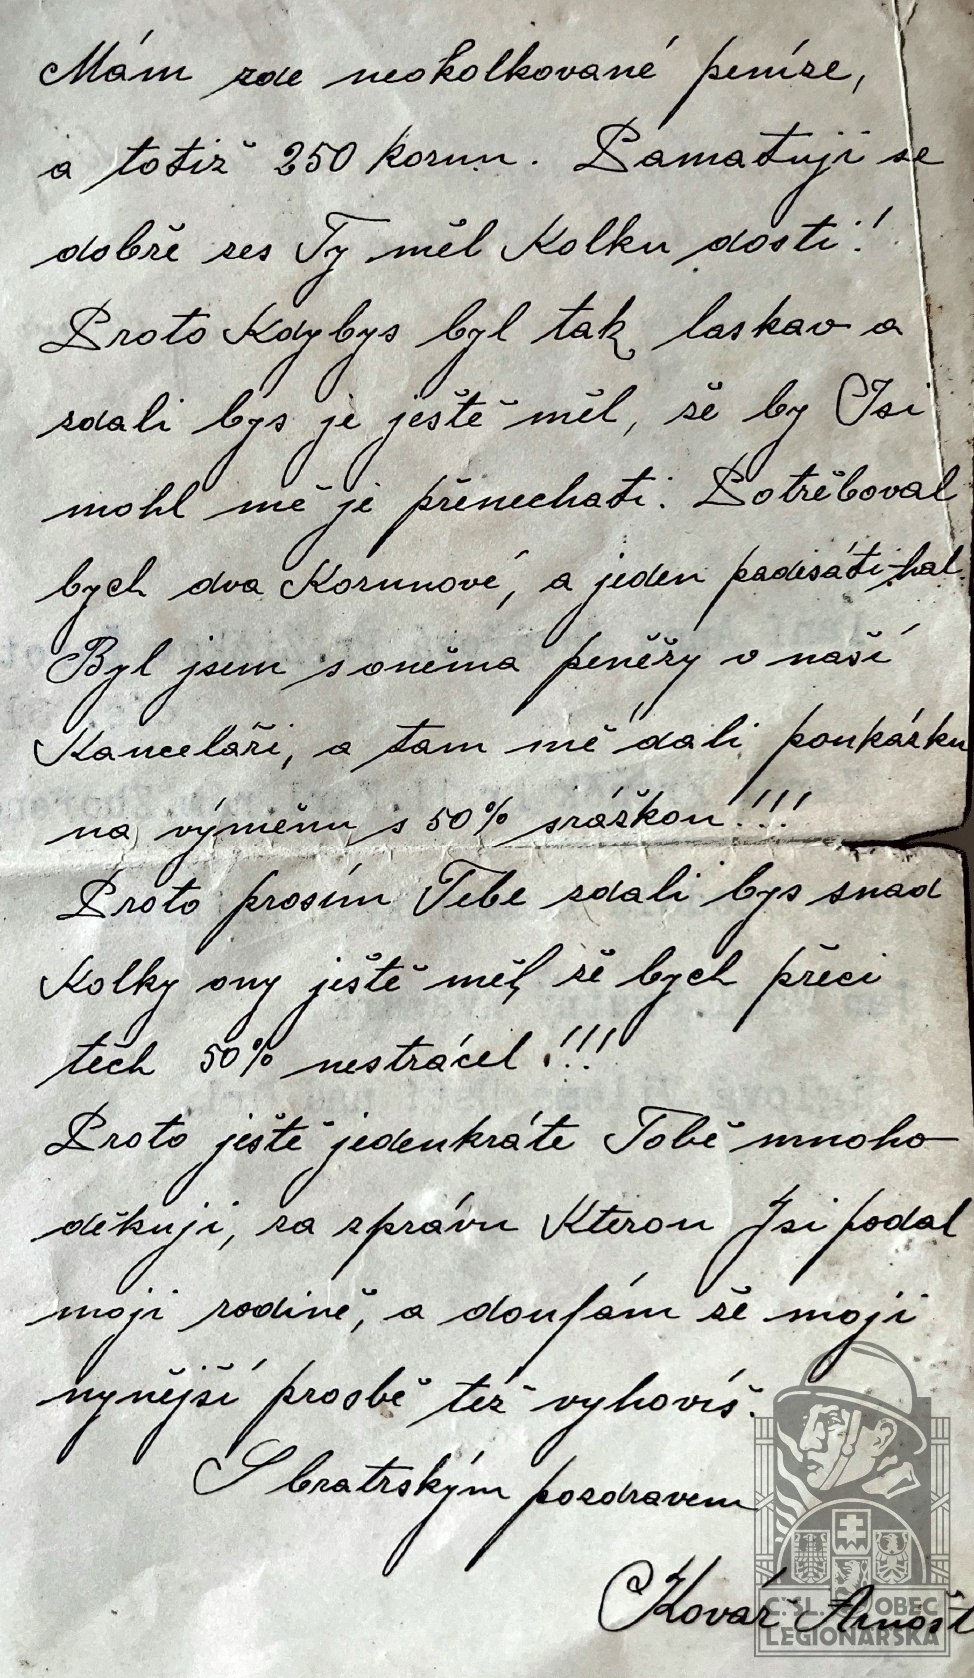 Mám zde neokolkované peníze,
a totiž 250 korun. Pamatuji se
dobře zes Ty měl Kolku dosti!
Proto Kdybys byl tak laskav a
zdali bys je ještě měl, že by Jsi
mohl mě je přenechati. Potřeboval
bych dva Korunové, a jeden padesáti hal.
Byl jsem s oněma peněžy v naší
Kanceláři, a tam mě dali poukázku
na výměnu s 50% srážkou!!!
Proto prosím Tebe zdali bys snad
Kolky ony ještě měl, že bych přeci
těch 50% nestrácel!!!
Proto ještě jedenkráte Tobě mnoho
děkuji, za zprávu Kterou Jsi podal
moji rodině, a doufám že moji
nynější prosbě též vyhovíš.
S bratrským pozdravem
Kovář Arnošt
Č. SL. OBEC
LEGIONÁŘSKÁ